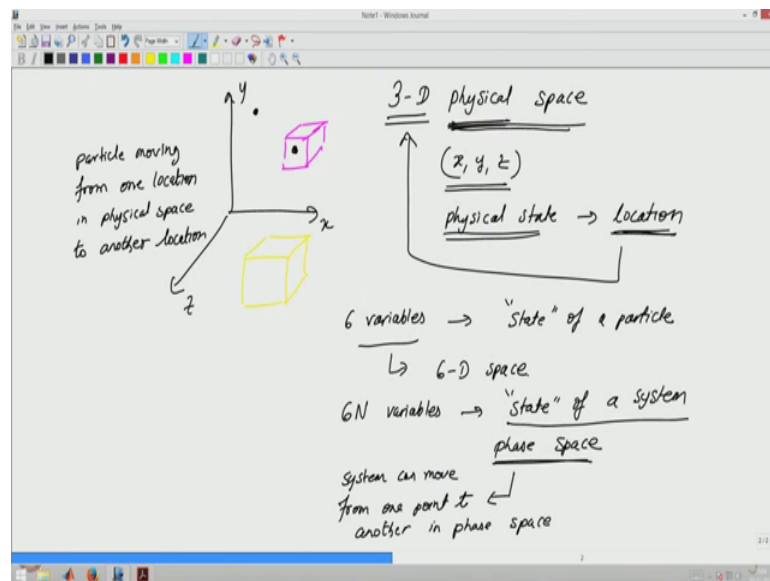 Note1 - Windows Journal
File Edit View Insert Actions Tools Help
Page Width
B I
y
x
z
particle moving
from one location
in physical space
to another location
3-D physical space
(x, y, z)
physical state → location
6 variables → "state" of a particle
↳ 6-D space
6N variables → "state" of a system
phase space
system can move
from one point t
another in phase space
2/2
2